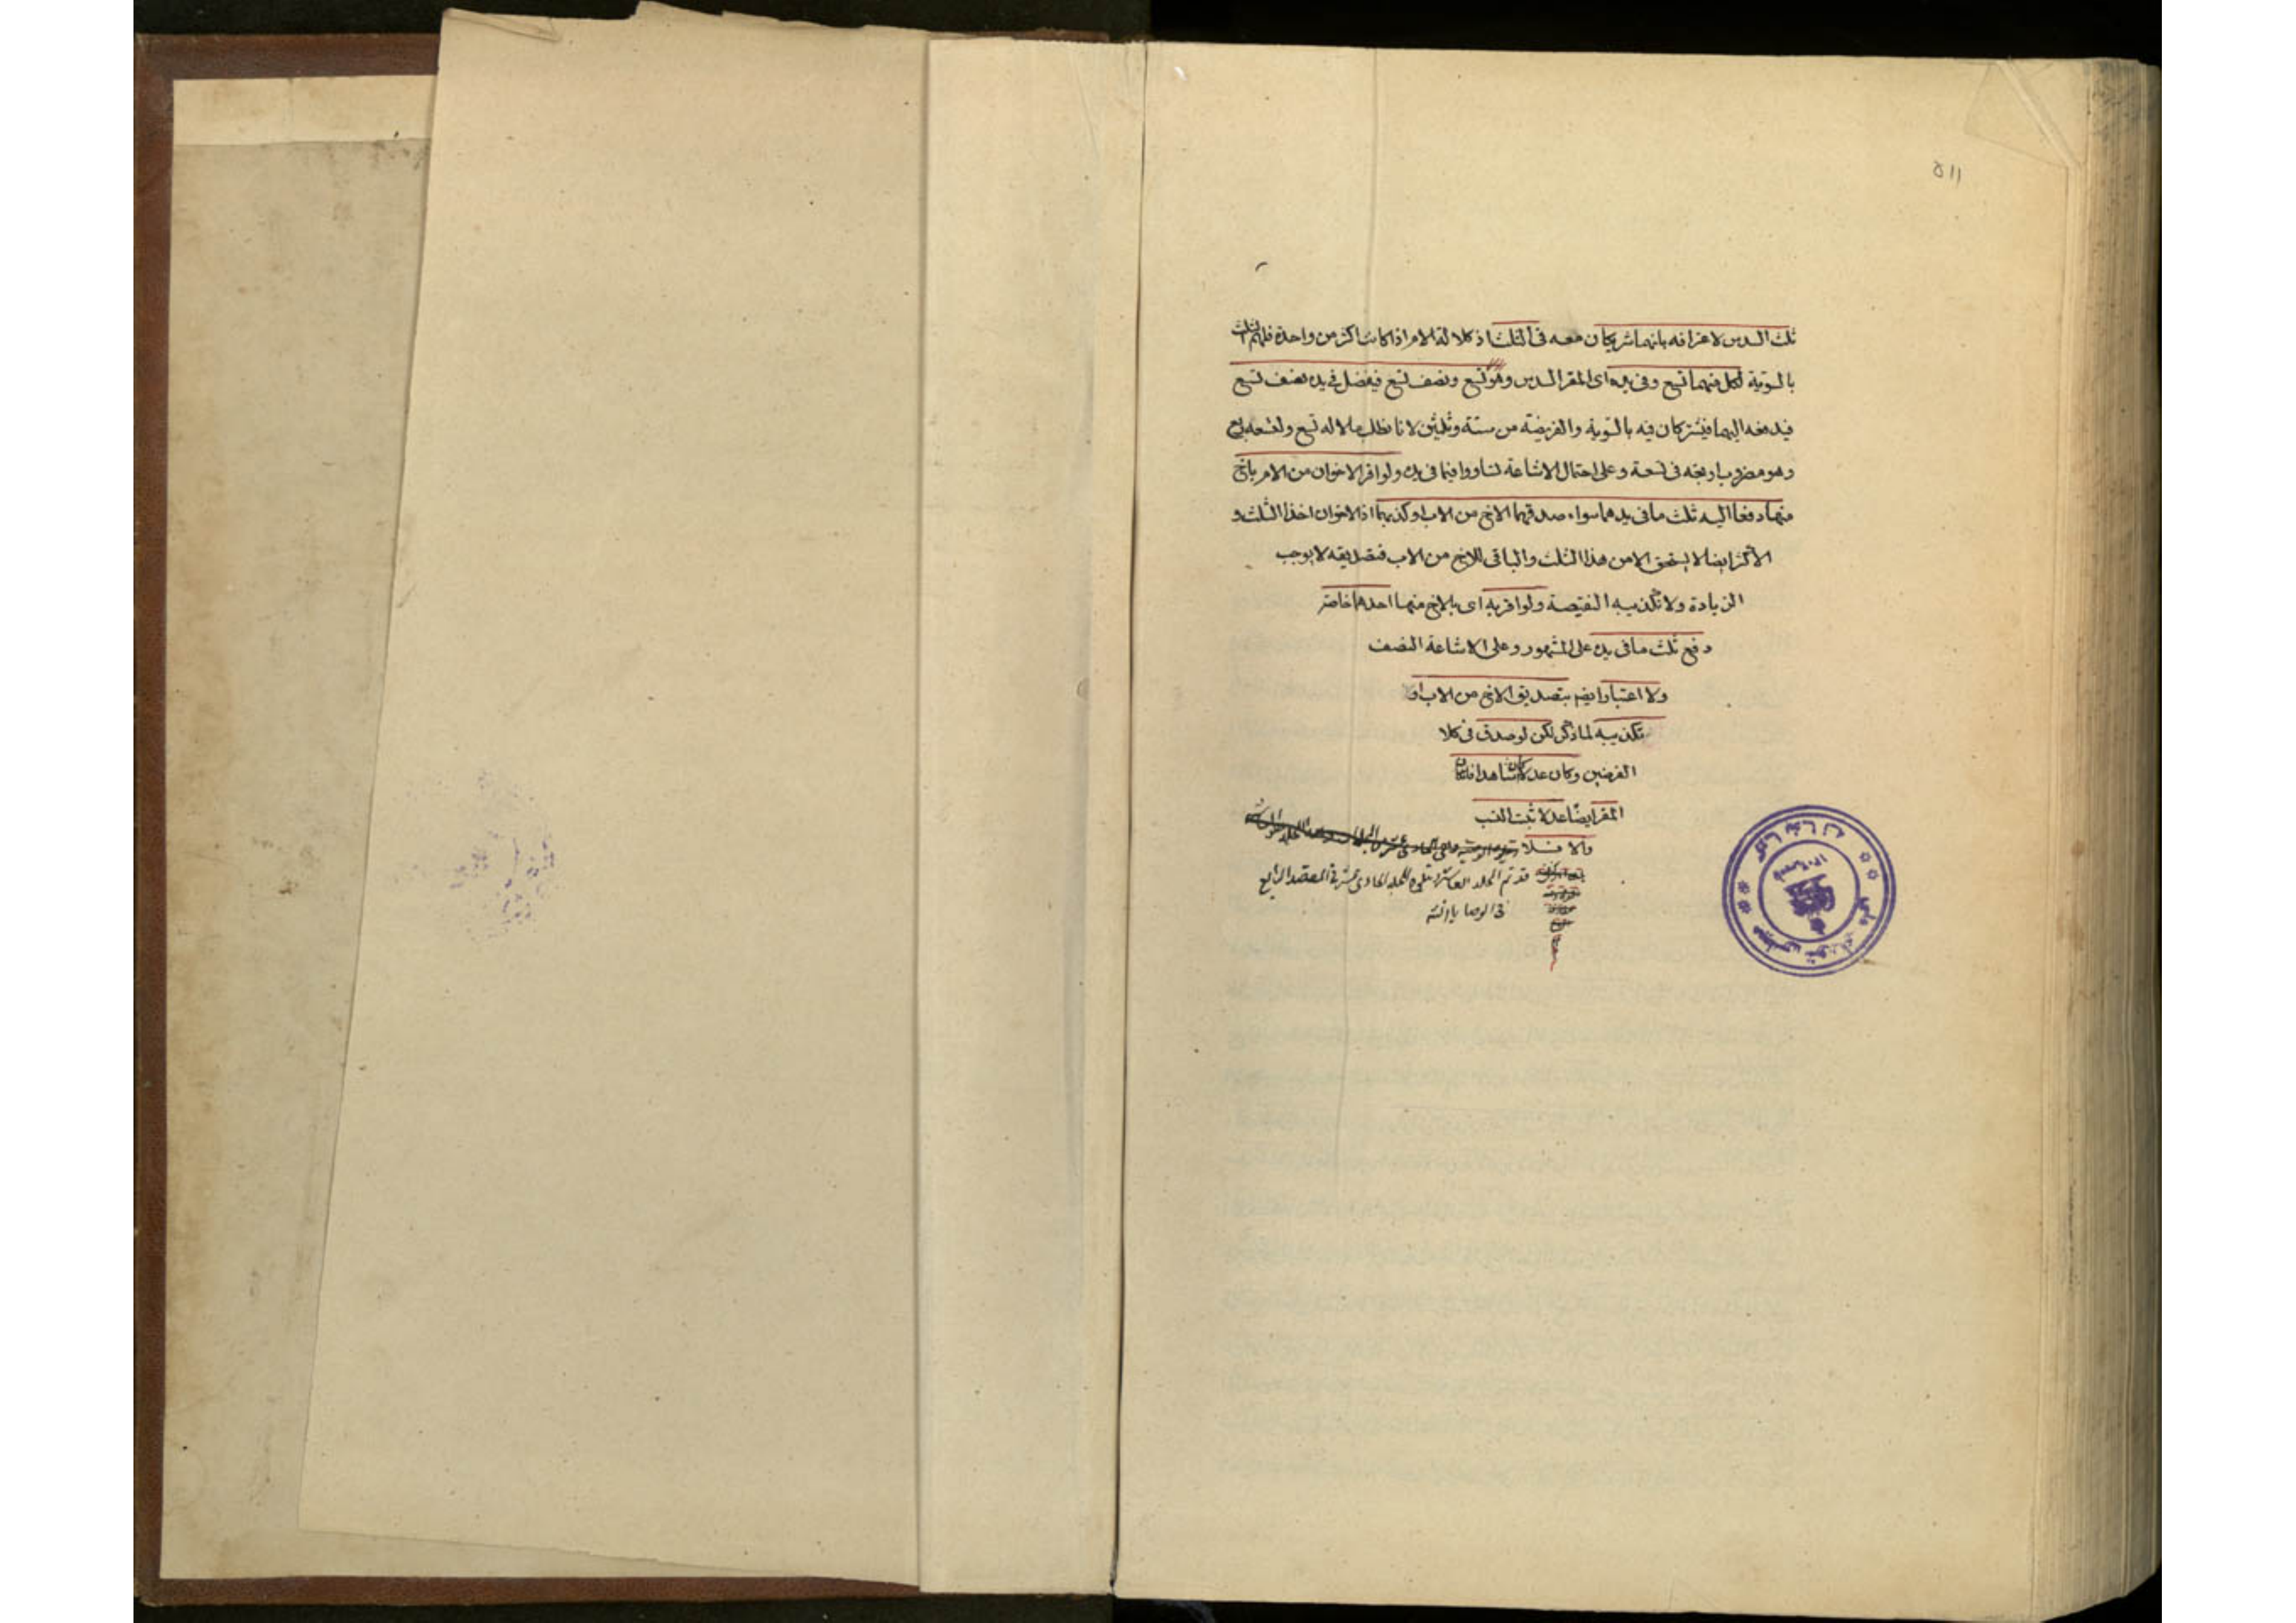 ٥١١
ثلث السدس لاعترافه بانهما شريكان معه فى الثلث اذ كلالة الام اذا كانت اكثر من واحدة فلهم الثلث
بالسوية لكل منهما تسع وفى يده اى المقر السدس وهو تسع ونصف تسع فيفضل فى يده نصف تسع
فيدفعه اليهما فيشتركان فيه بالسوية والفريضة من ستة وثلثين لانا نطلب مالا له تسع ولتسعه ربع
وهو مضروب اربعة فى تسعة وعلى احتمال الاشاعة تساووا فيما فى يده ولو اقر الاخوان من الام باخ
منها دفعا اليه ثلث ما فى يدهما سواء صدقهما الاخ من الاب او كذبهما اذ الاخوان اخذا الثلث و
الاكثر ايضا لا يستحق الا من هذا الثلث والباقى للاخ من الاب فتصديقه لا يوجب
الزيادة ولا تكذيبه النقيصة ولو اقر به اى بالاخ منهما احدهما خاصة
دفع ثلث ما فى يده على المشهور وعلى الاشاعة النصف
ولا اعتبار ايضم بتصديق الاخ من الاب او
تكذيبه لما ذكر لكن لو صدق فى كلا
الفرضين وكان عدلا كان شاهدا فان كان
المقر ايضا عدلا ثبت النسب
والا فلا
قد تم المجلد العاشر ويتلوه المجلد الحادى عشر فى المقصد الرابع
فى الوصايا انشه